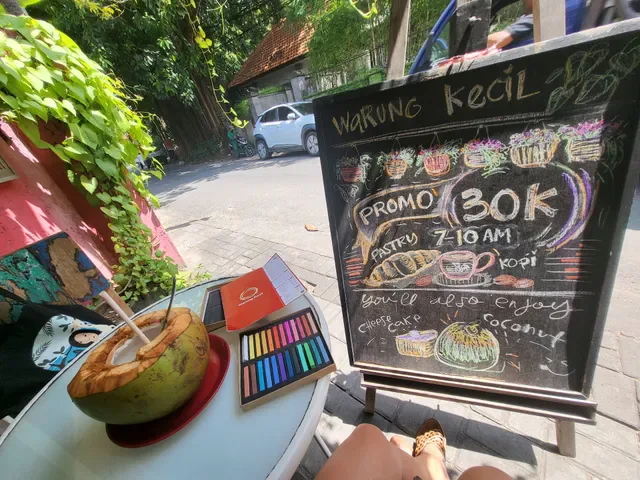 WARUNG KECIL
PROMO 30K
PASTRY 7-10 AM KOPI
you'll also enjoy
cheese cake coconut